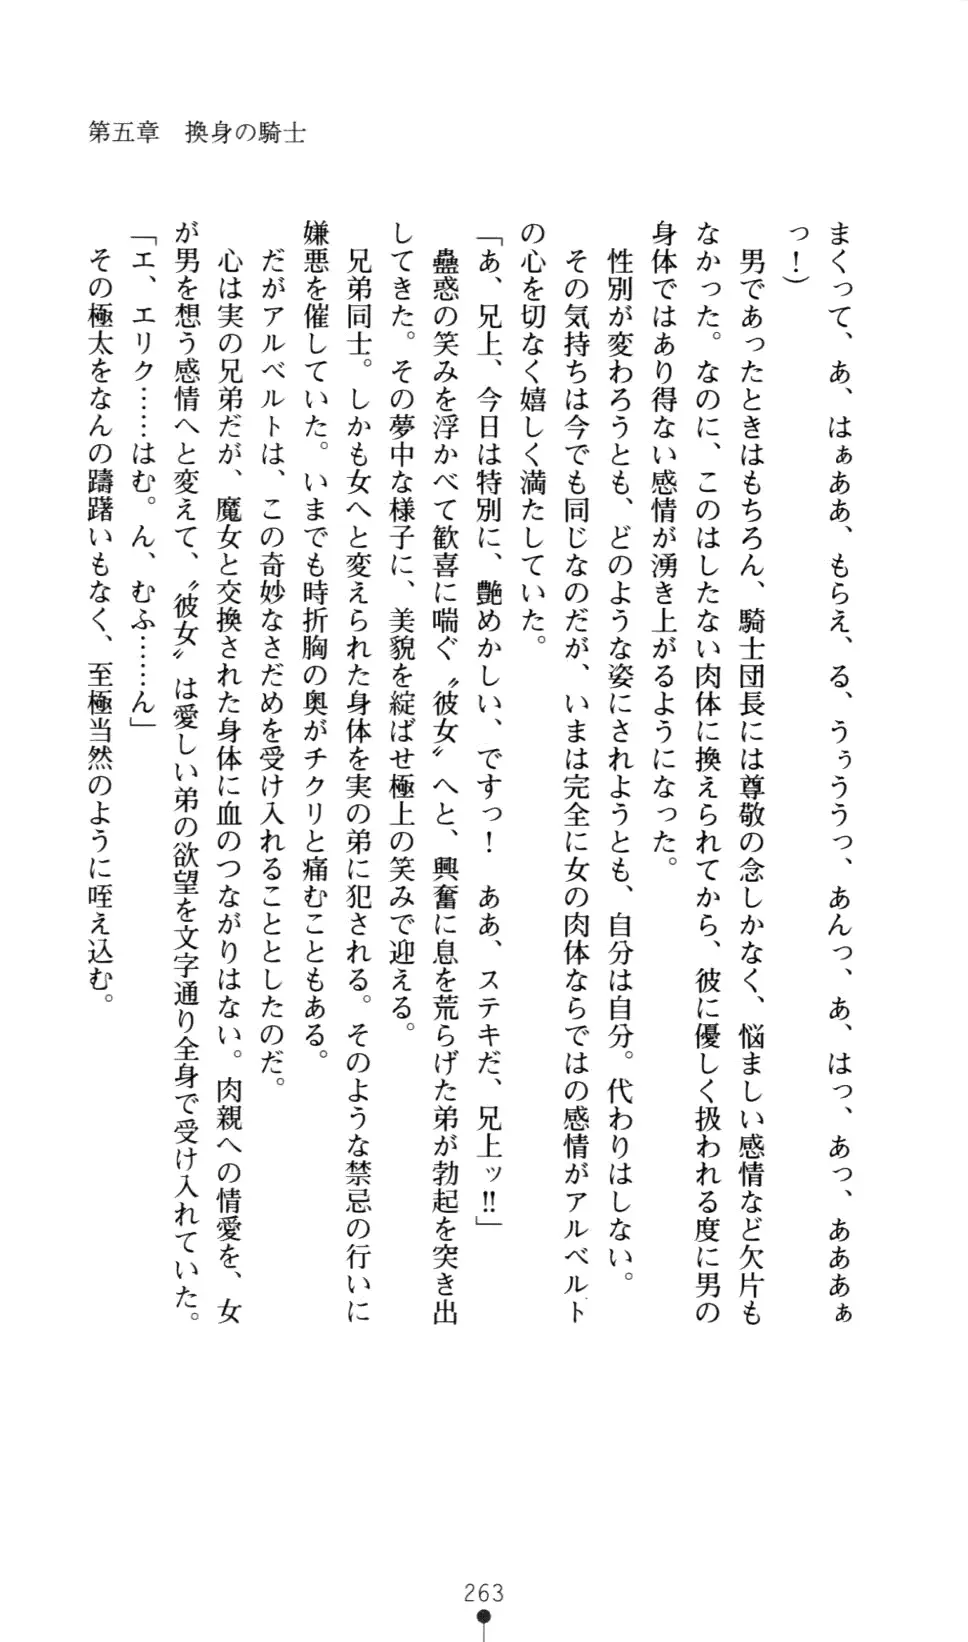 第五章　換身の騎士
まくって、あ、はぁああ、もらえ、る、うぅううっ、あんっ、あ、はっ、あっ、あああぁ
っ！）
　男であったときはもちろん、騎士団長には尊敬の念しかなく、悩ましい感情など欠片も
なかった。なのに、このはしたない肉体に換えられてから、彼に優しく扱われる度に男の
身体ではあり得ない感情が湧き上がるようになった。
　性別が変わろうとも、どのような姿にされようとも、自分は自分。代わりはしない。
　その気持ちは今でも同じなのだが、いまは完全に女の肉体ならではの感情がアルベルト
の心を切なく嬉しく満たしていた。
「あ、兄上、今日は特別に、艶めかしい、ですっ！　ああ、ステキだ、兄上ッ‼」
　蠱惑の笑みを浮かべて歓喜に喘ぐ〝彼女〟へと、興奮に息を荒らげた弟が勃起を突き出
してきた。その夢中な様子に、美貌を綻ばせ極上の笑みで迎える。
　兄弟同士。しかも女へと変えられた身体を実の弟に犯される。そのような禁忌の行いに
嫌悪を催していた。いまでも時折胸の奥がチクリと痛むこともある。
　だがアルベルトは、この奇妙なさだめを受け入れることとしたのだ。
　心は実の兄弟だが、魔女と交換された身体に血のつながりはない。肉親への情愛を、女
が男を想う感情へと変えて、〝彼女〟は愛しい弟の欲望を文字通り全身で受け入れていた。
「エ、エリク……はむ。ん、むふ……ん」
　その極太をなんの躊躇いもなく、至極当然のように咥え込む。
263